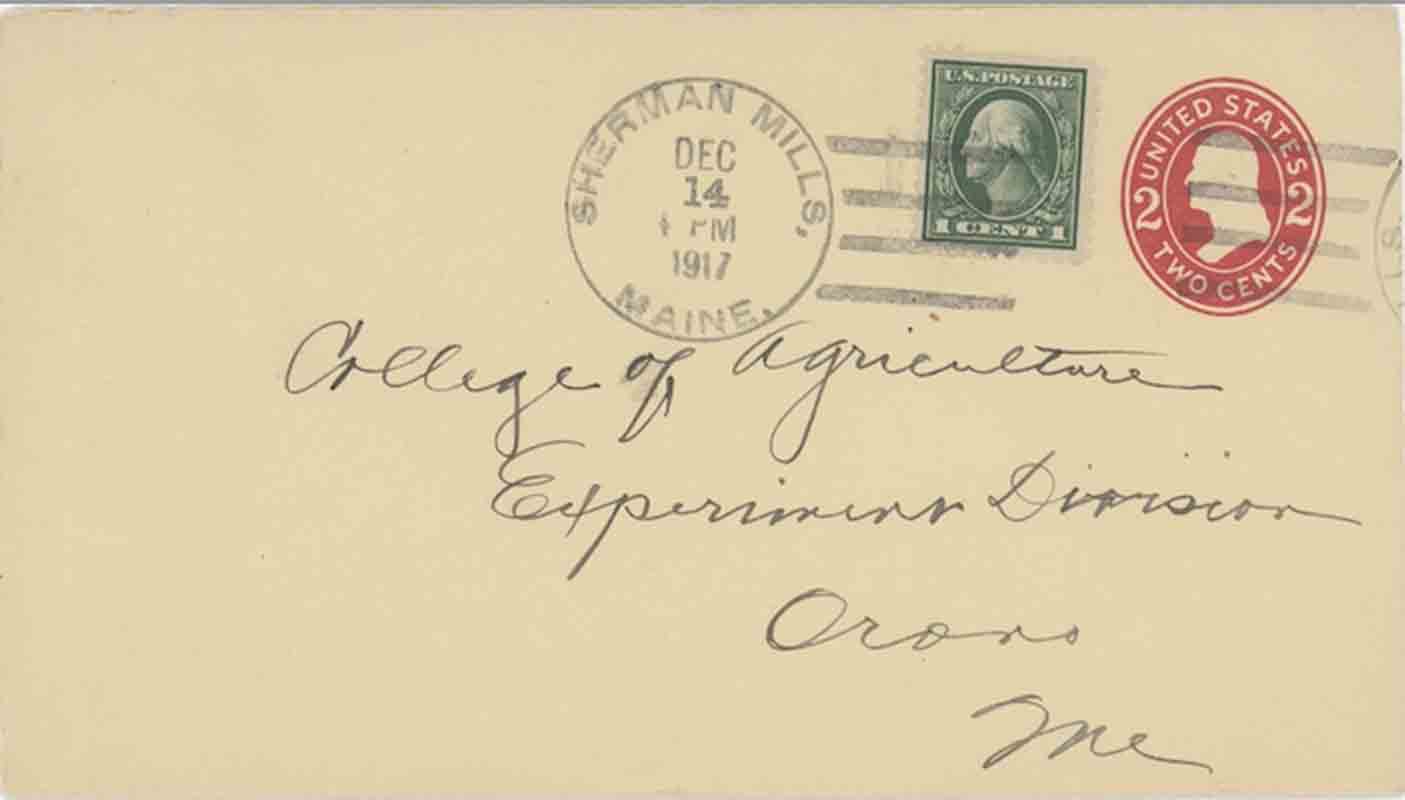 SHERMAN MILLS,
DEC
14
PM
1917
MAINE.
U.S. POSTAGE
1 CENT 1
UNITED STATES
2 2
TWO CENTS
College of Agriculture
Experiment Division
Orono
Me